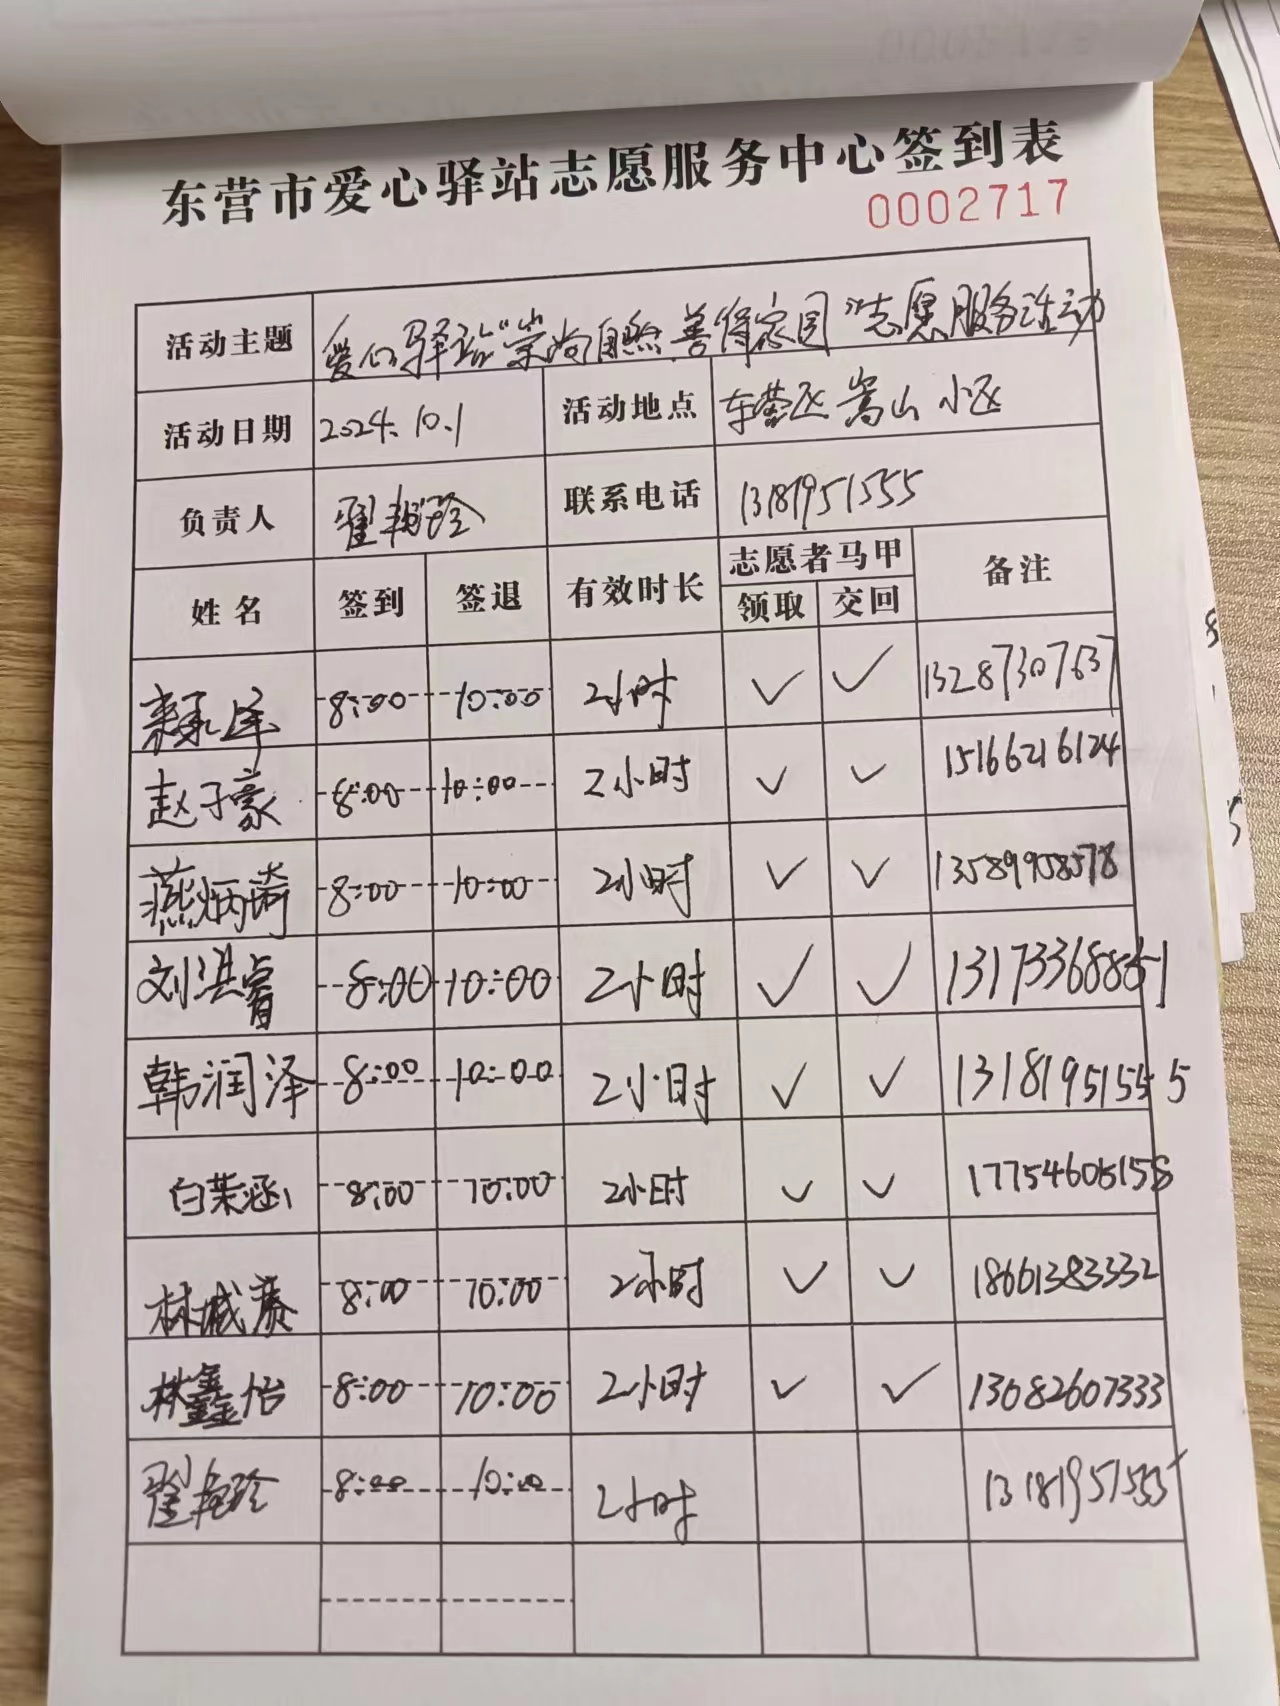 东营市爱心驿站志愿服务中心签到表
0002717
活动主题 爱心驿站"崇尚自然 善待家园"志愿服务活动
活动日期 2024.10.1 活动地点 东营区嵩山小区
负责人 翟艳玲 联系电话 13181951555
姓名 签到 签退 有效时长 志愿者马甲 备注
领取 交回
8:00 10:00 2小时 ✓ ✓ 13287307637
赵子豪 8:00 10:00 2小时 ✓ ✓ 15166216124
燕炳琦 8:00 10:00 2小时 ✓ ✓ 13589958578
刘洪睿 8:00 10:00 2小时 ✓ ✓
韩润泽 8:00 10:00 2小时 ✓ ✓ 13181951555
白茉涵 8:00 10:00 2小时 ✓ ✓ 17754605158
8:00 10:00 2小时 ✓ ✓ 18661383332
林鑫怡 8:00 10:00 2小时 ✓ ✓ 13082607333
翟艳玲 8:00 10:00 2小时 13181951555